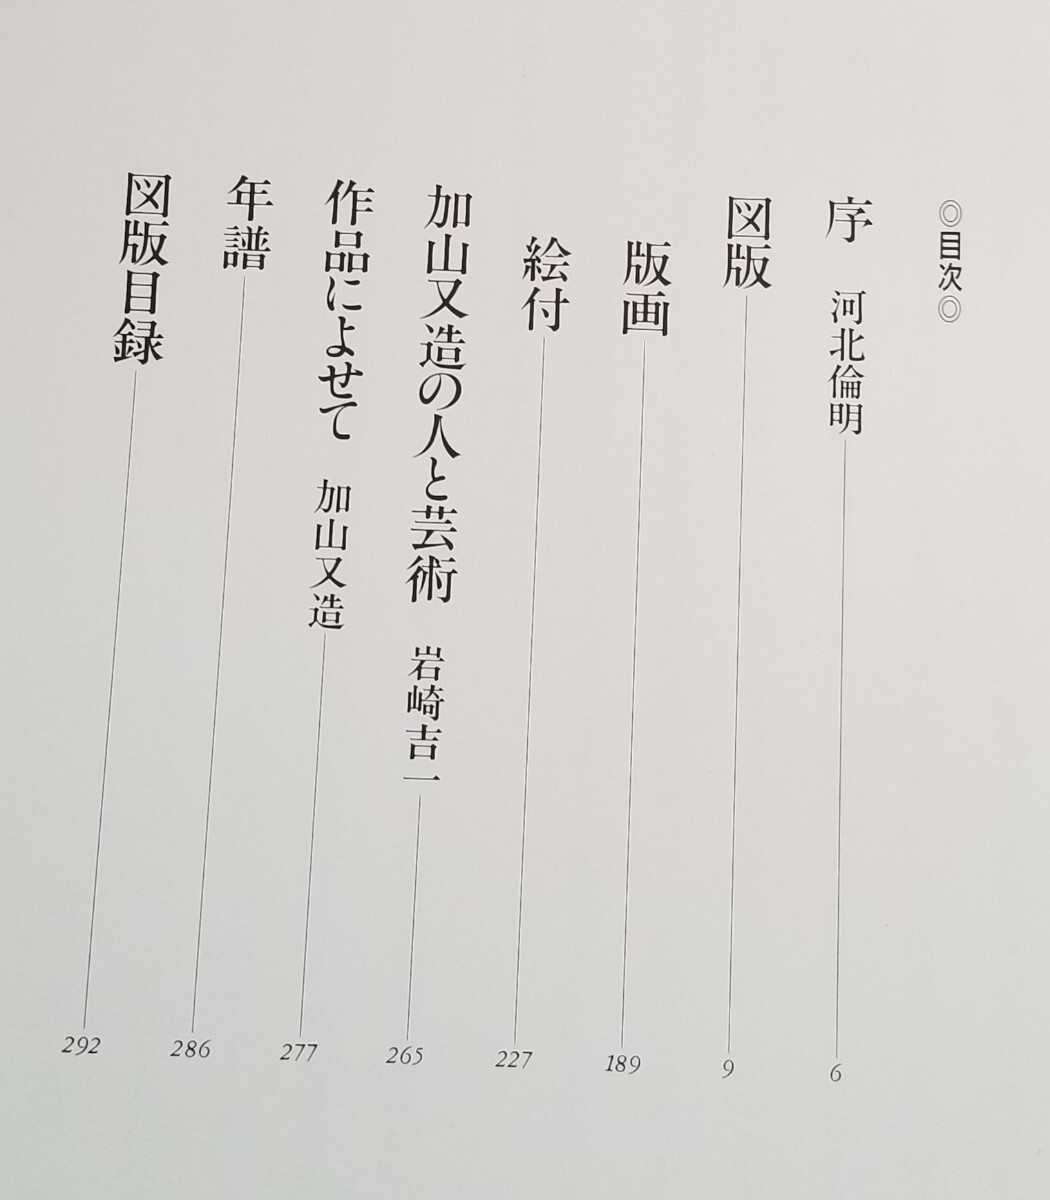 ◎目次◎
序 河北倫明 6
図版 9
版画 189
絵付 227
加山又造の人と芸術 岩崎吉一 265
作品によせて 加山又造 277
年譜 286
図版目録 292